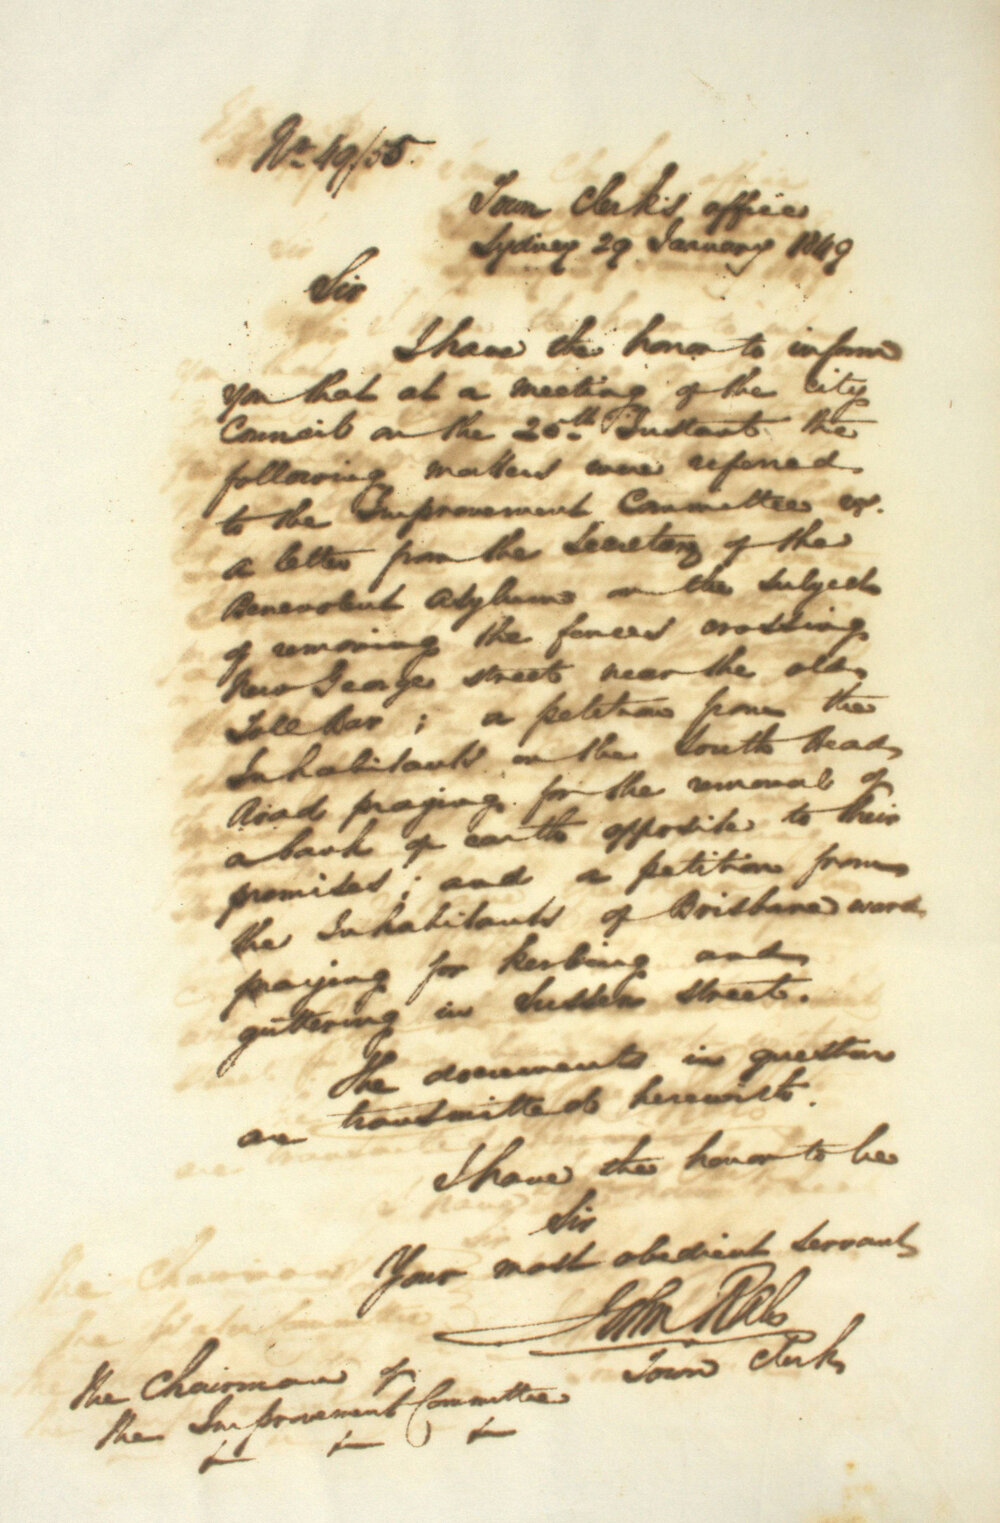 No 49/55.
Town Clerk's office
Sydney 29 January 1849
Sir
I have the honor to inform
you that at a meeting of the City
Council on the 25th Instant the
following matters were referred
to the Improvement Committee vz.
a letter from the Secretary of the
Benevolent Asylum on the subject
of removing the fences crossing
New George street near the old
Toll Bar ; a petition from the
Inhabitants on the South Head
Road praying for the removal of
a bank of earth opposite to their
premises ; and a petition from
the Inhabitants of Brisbane ward
praying for kerbing and
guttering in Sussex street.
The documents in question
are transmitted herewith.
I have the honor to be
Sir
Your most obedient servant
John Rae
Town Clerk
The Chairman of
the Improvement Committee